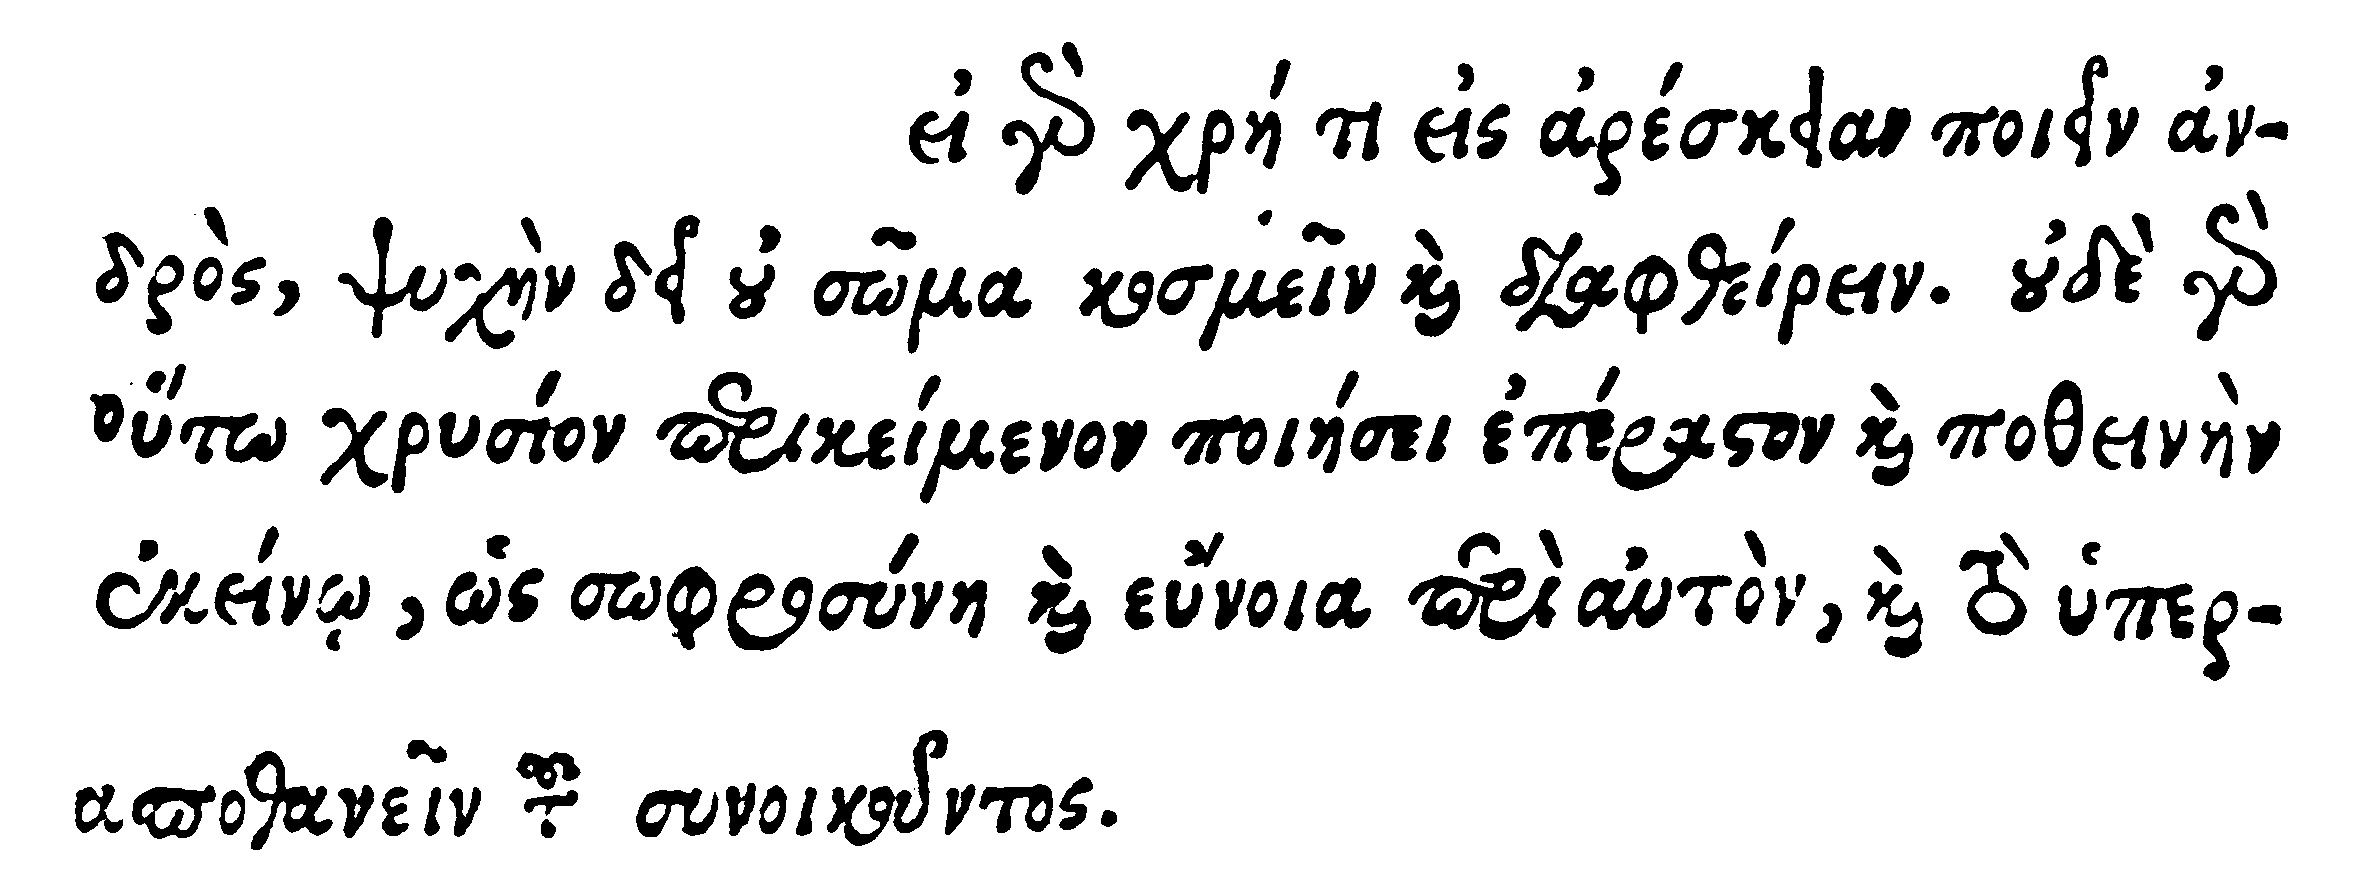 εἰ γὸ χρή τι εἰς ἀρέσκειαν ποιεῖν ἀν-
δρὸς, ψυχὴν δεῖ οὐ σῶμα κοσμεῖν καὶ διαφθείρειν. οὐδὲ γὸ
οὕτω χρυσίον περικείμενον ποιήσει ἐπέραστον καὶ ποθεινὴν
ἐκείνῳ, ὡς σωφροσύνη καὶ εὔνοια περὶ αὐτὸν, καὶ τὸ ὑπερ-
αποθανεῖν τοῦ συνοικοῦντος.